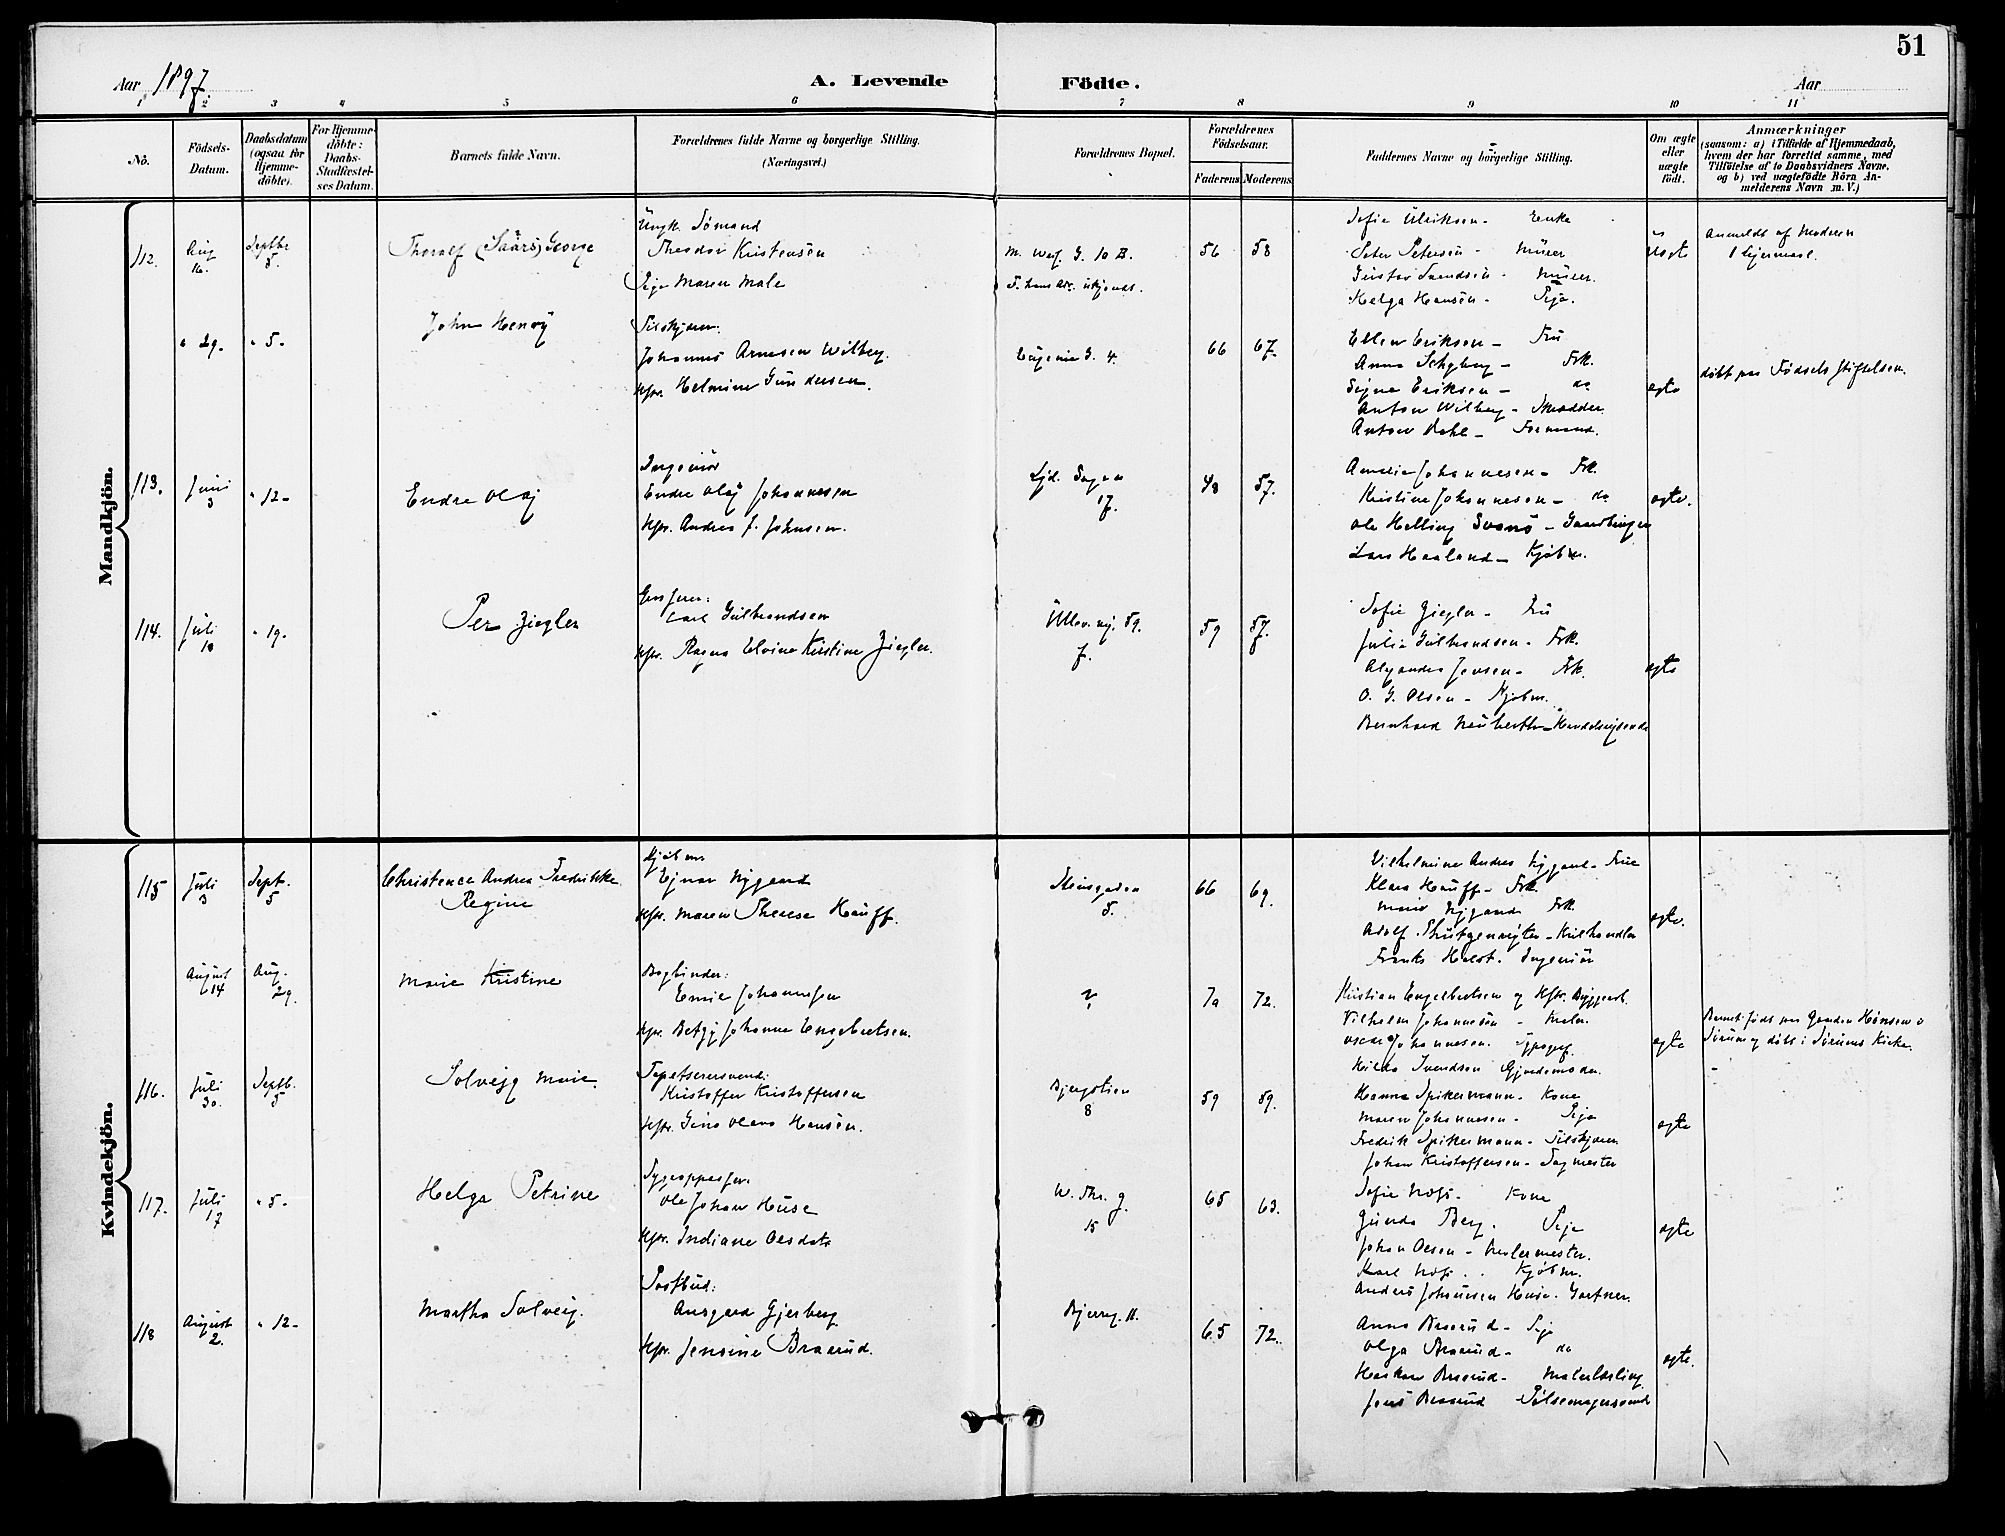 51
Aar 1897.
A. Levende Födte.
Aar
1 2 3 4 5 6 7 8 9 10 11
No.
Födsels-
Datum.
Daabsdatum
(ogsaa för
Hjemme-
döbte).
For Hjemme-
döbte:
Daabs-
Stadfæstel-
ses Datum.
Barnets fulde Navn.
Forældrenes fulde Navne og borgerlige Stilling.
(Næringsvei.)
Forældrenes Bopæl.
Forældrenes
Födselsaar.
Faderens Moderens
Faddernes Navne og borgerlige Stilling.
Om ægte
eller
uægte
födt.
Anmærkninger
(saasom: a) i Tilfælde af Hjemmedaab,
hvem der har forrettet samme, med
Tilföielse af to Daabsvidners Navne.
og b) ved uægtefödte Börn An-
melderens Navn m. V.)
Mandkjön.
112.
Aug
16.
Septbr
5.
Thoralf (Saars) George
Ungk. Sømand
Theodor Kristensen
Pige Maren Male
56 58
Sofie Ulriksen - Enke
Peter Petersen - Murer
Gustav Svendsen - Murer
Helga Hansen - Pige.
Anmeldt af Moderen
" 29. " 5-
John Henry
Johannes Arnesen Wilberg
Hstr. Helmine Gundersen.
Eugenie G. 4.
66 67.
Ellen Eriksen - Fru
Anna Schyberg - Frk.
Signe Eriksen - do
Anton Wilberg - Skrædder
Anton Dahl - Formand.
ægte
døbt paa Fødsels Stiftelsen.
113.
Juni
3
" 12-
Endre Olaf
Ingeniør
Endre Olaf Johannesen
Hstr. Andrea J. Johnsen.
17.
48 57.
Amalie Johannesen - Frk.
Kristine Johannesen - do
Ole Helling
Lars Haaland - Kjøbm.
ægte.
114.
Juli
10
" 19.
Per Ziegler
Carl Gulbrandsen
Hstr. Ragna Elvine Kristine Ziegler.
Ullev.vej. 59.
59 57.
Sofie Ziegler - Fru
Julie Gulbrandsen - Frk.
Jensen - Frk.
O. G. Olsen - Kjøbm.
Bernhard Neuberth - Handelsrejsende
ægte
Kvindekjön.
115
Juli
3
Sept.
5
Christence Andrea Fredrikke
Regine
Kjøbm
Ejnar Nygaard
Hstr. Maren Therese Hauff.
Stensgaden
5.
66 69.
Vilhelmine Andrea Nygaard - Frue
Klara Hauff - Frk.
Marie Nygaard Frk.
Adolf - Kulhandler
Frants Holst. Ingeniør
ægte.
August
14
Aug.
29.
Marie Kristine
Bogbinder:
Emil Johannesen
Hstr. Betzy Johanne Engebretsen.
?
70 72.
Kristian Engelbretsen og Hstr.
Vilhelm Johannesen - Maler
Oscar Johannesen.
Hilda Svendsen
ægte
Barnet født paa Gaarden i
Sørum og døbt i Sørums Kirke.
116.
Juli
30.
Septb.
5
Solveig Marie.
Tapetserersvend:
Kristoffer Kristoffersen
Hstr. Gina Olava Hansen.
8
59 59.
Hanna Spikermann - Kone
Maren Johannesen - Pige
Fredrik Spikermann -
Johan Kristoffersen - Sagmester
ægte
117.
Juli
17
" 5-
Helga Petrine
Sygeopasser
Ole Johan Huse
Hstr. Indiane Olsdatr
15
65 63.
Sofie - Kone
Gunda Berg. Pige
Johan Olsen - Malermester.
Karl Kjøbm.
Anders Johansen Huse. Gartner.
ægte
118
August
2.
" 12-
Martha Solveig.
Postbud:
Ansgard Gjerberg
Hstr. Jensine Braarud.
Bjerreg. 11.
65 72.
Anna Braarud - Pige
Olga Braarud - do
Haakon Braarud - Malerlærling
Jens Braarud Pølsemagersvend
ægte.